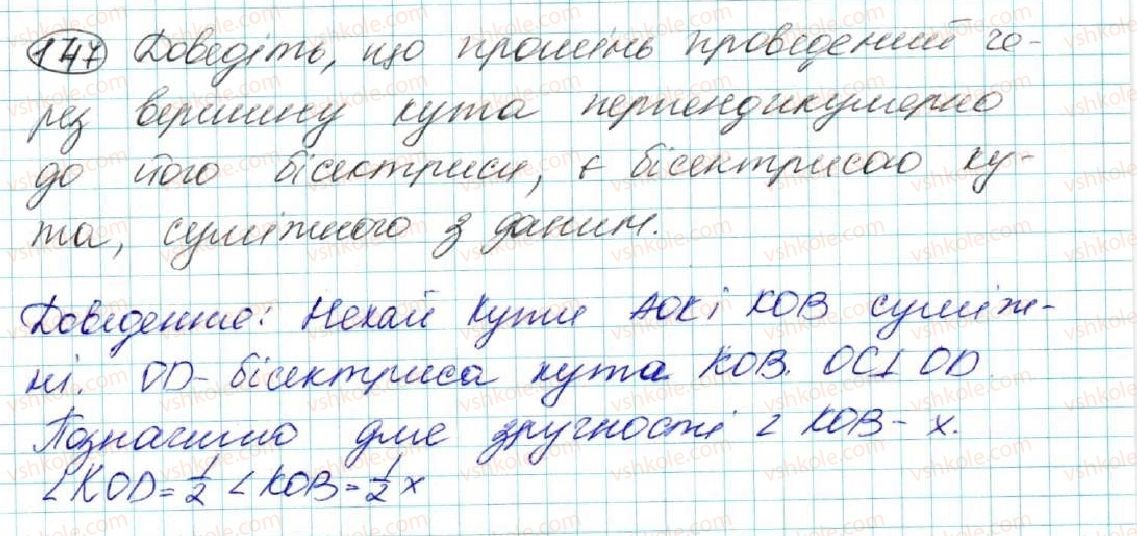 147 Доведіть, що промінь проведений че-
рез вершину кута перпендикулярно
до його бісектриси, є бісектрисою ку-
та, суміжного з даним.
Доведення: Нехай кути АОК і КОВ суміж-
ні. OD - бісектриса кута КОВ. OC⊥OD
Позначимо для зручності ∠ КОВ - х.
∠KOD = 1/2 ∠KOB = 1/2 x